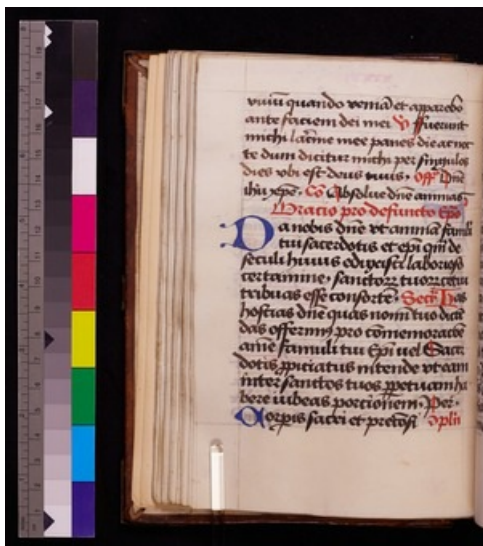 viuū quando veniā et apparebo
ante faciem dei mei V̄ ffuerunt
michi lacrīe mee panes die ac noc
te dum dicitur michi per singulos
dies vbi est deus tuus. Off̄ Dn̄e
ihū xp̄e. Cō Absolue dn̄e animas
Oratio pro defuncto Ep̄o
Da nobis dn̄e vt animā famuli
tui sacerdotis et ep̄i quē de
seculi huius edixisti laborioso
certamine, sanctorꝝ tuorꝝ cetui
tribuas esse consortē. Secr̄ Has
hostias dn̄e quas nomī tuo
das offerim̄ pro cōmemoracōe
aīe famuli tui Ep̄i uel Sacer
dotis ꝓpiciatus intende vt eam
inter sanctos tuos ꝑpetuam ha
bere iubeas porcionem. Per.
Corporis sacri et preciosi 9plā